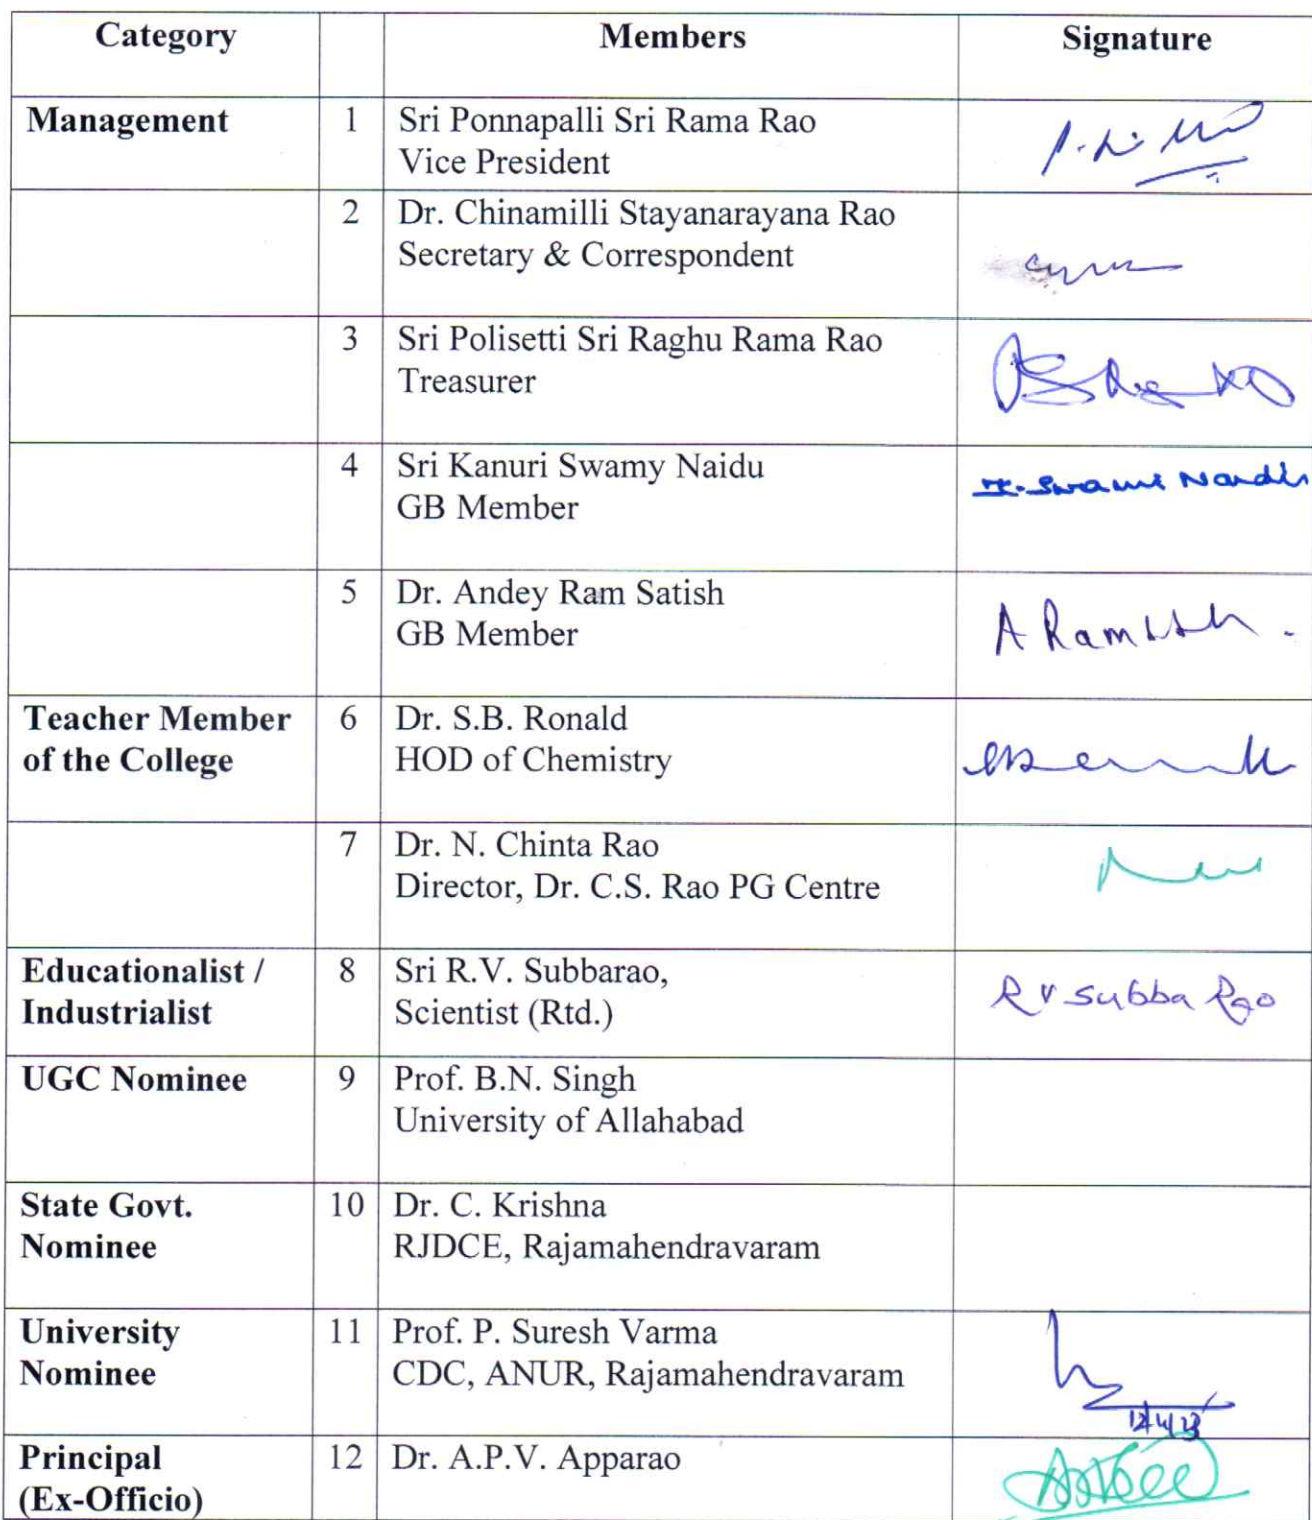 Category Members Signature
Management 1 Sri Ponnapalli Sri Rama Rao
Vice President
2 Dr. Chinamilli Stayanarayana Rao
Secretary & Correspondent
3 Sri Polisetti Sri Raghu Rama Rao
Treasurer
4 Sri Kanuri Swamy Naidu
GB Member
5 Dr. Andey Ram Satish
GB Member
Teacher Member 6 Dr. S.B. Ronald
of the College HOD of Chemistry
7 Dr. N. Chinta Rao
Director, Dr. C.S. Rao PG Centre
Educationalist / 8 Sri R.V. Subbarao,
Industrialist Scientist (Rtd.) R V Subba Rao
UGC Nominee 9 Prof. B.N. Singh
University of Allahabad
State Govt. 10 Dr. C. Krishna
Nominee RJDCE, Rajamahendravaram
University 11 Prof. P. Suresh Varma
Nominee CDC, ANUR, Rajamahendravaram
Principal 12 Dr. A.P.V. Apparao
(Ex-Officio)